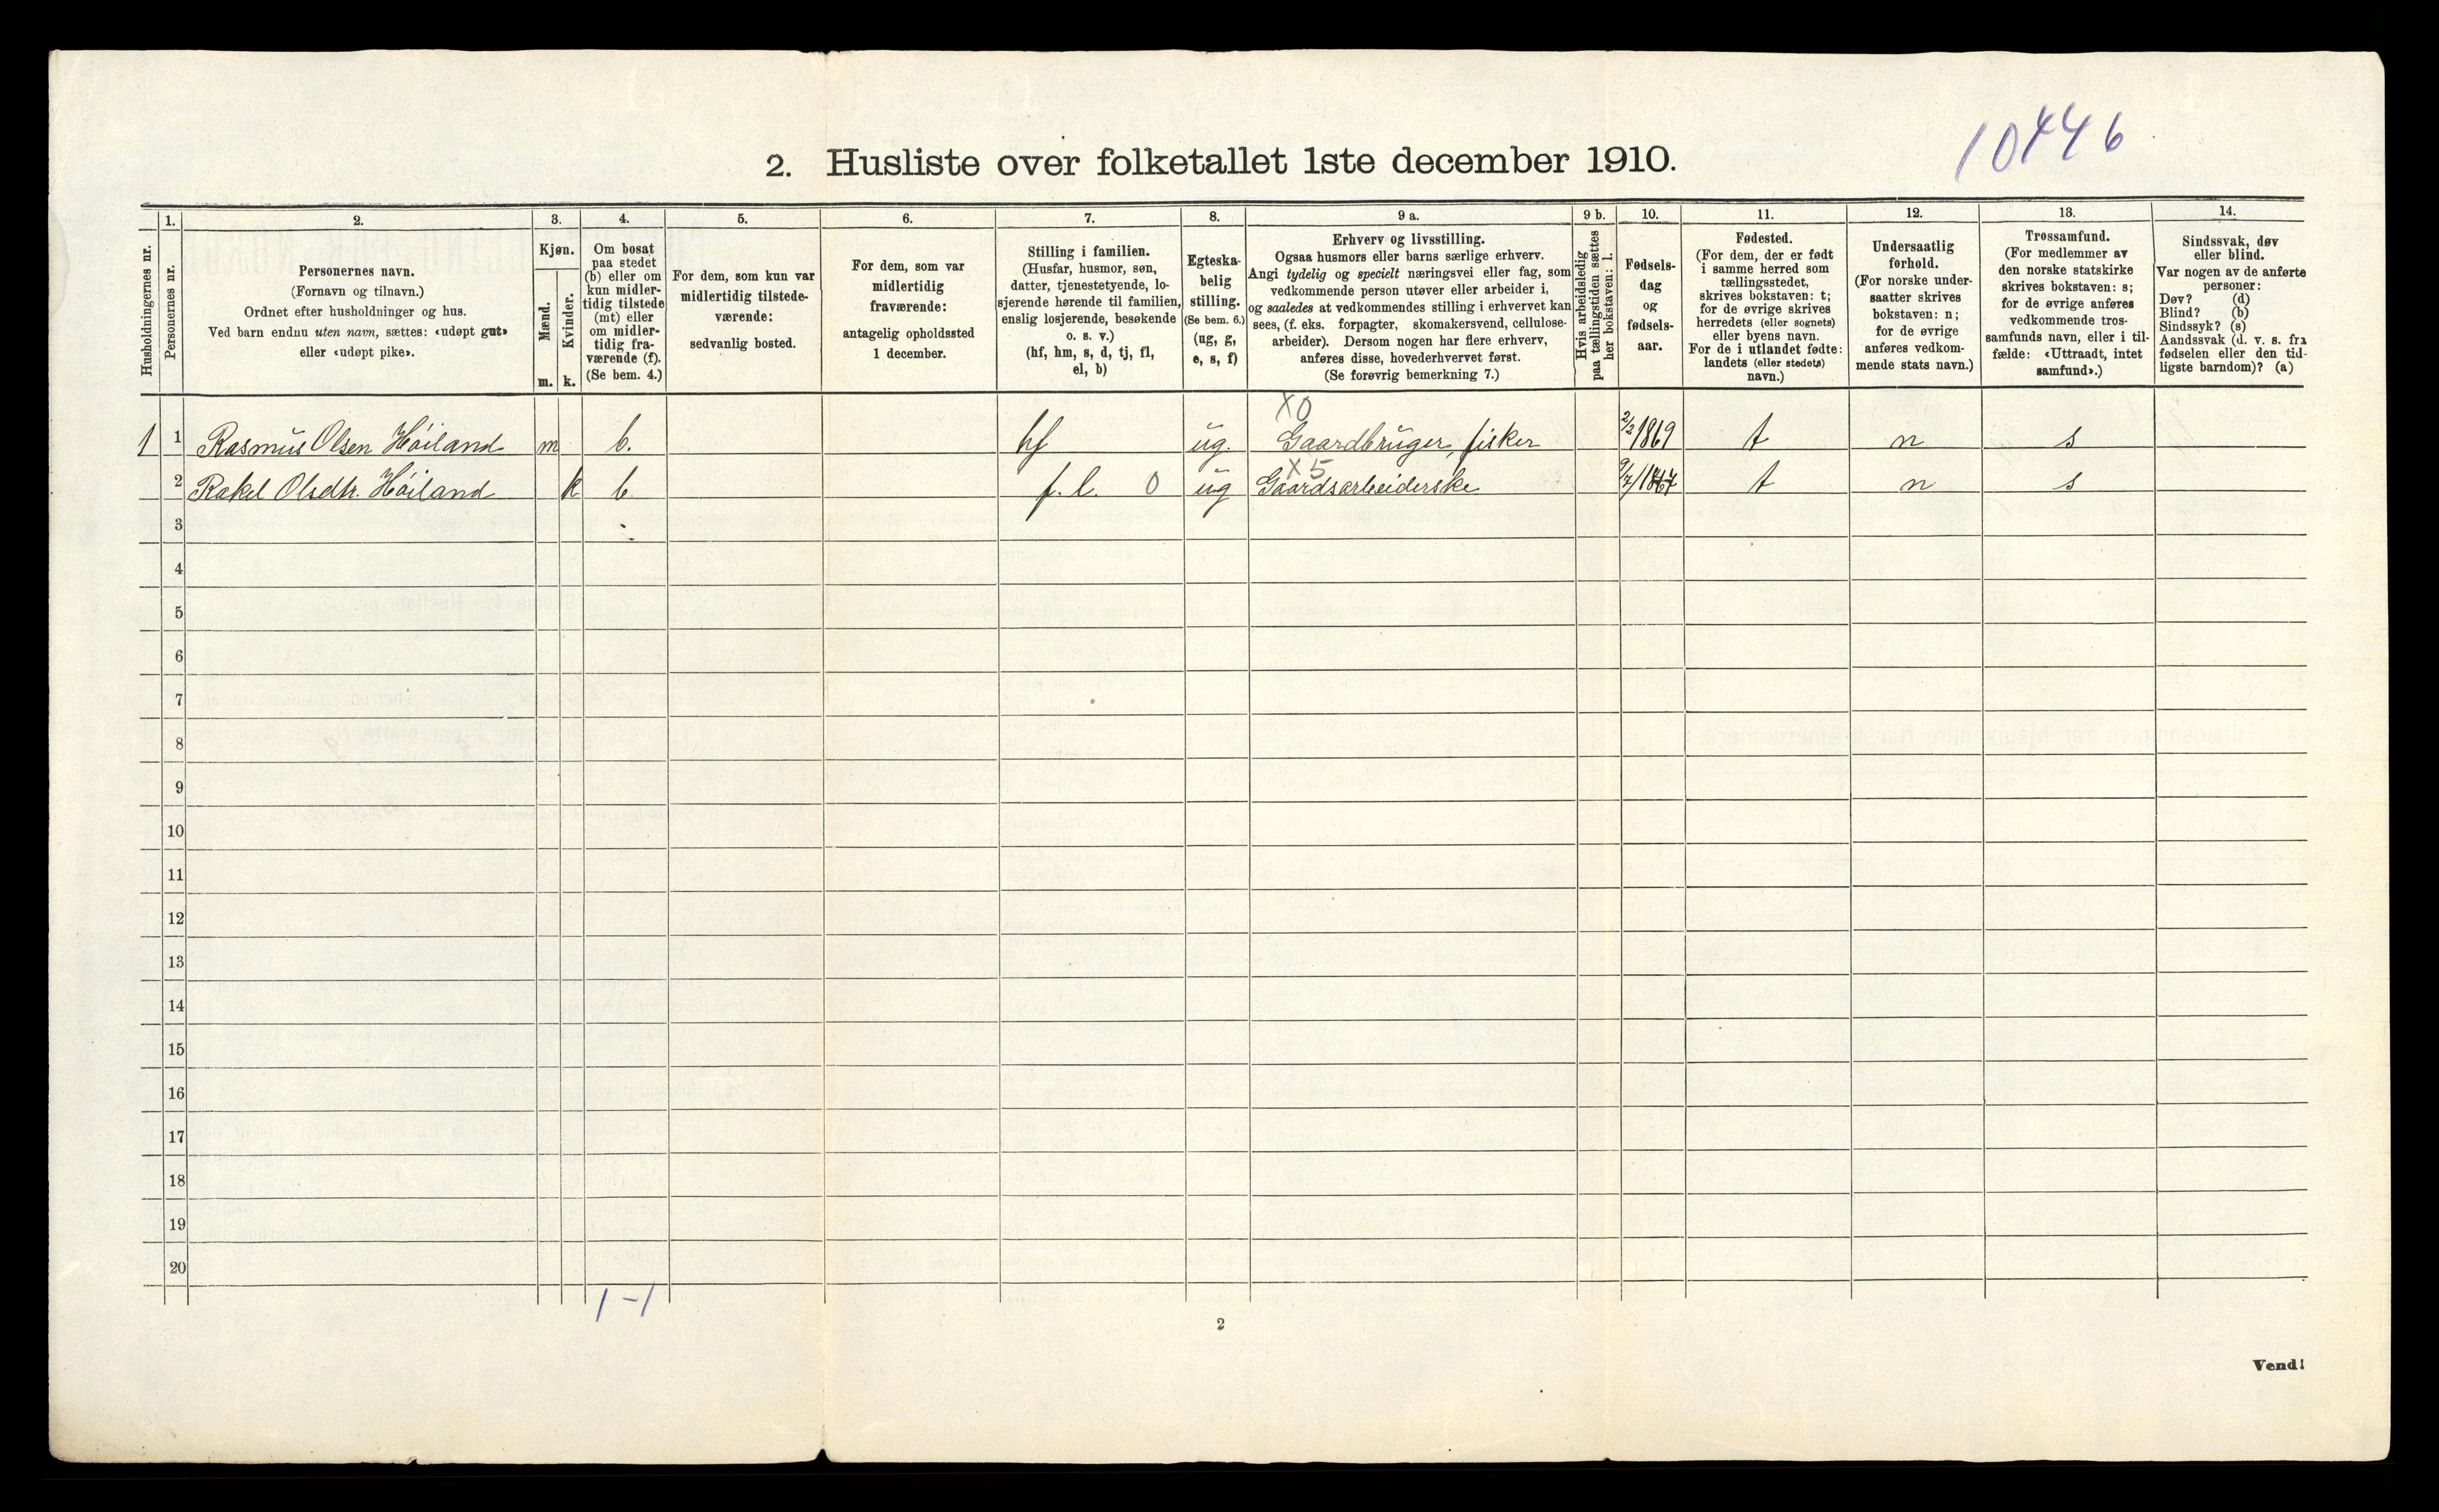 10446
2. Husliste over folketallet 1ste december 1910.
Husholdningernes nr.
1.
Personernes nr.
2.
Personernes navn.
(Fornavn og tilnavn.)
Ordnet efter husholdninger og hus.
Ved barn endnu uten navn, sættes: «udøpt gut»
eller «udøpt pike».
3.
Kjøn.
Mænd.
Kvinder.
m. k.
4.
Om bosat
paa stedet
(b) eller om
kun midler-
tidig tilstede
(mt) eller
om midler-
tidig fra-
værende (f).
(Se bem. 4.)
5.
For dem, som kun var
midlertidig tilstede-
værende:
sedvanlig bosted.
6.
For dem, som var
midlertidig
fraværende:
antagelig opholdssted
1 december.
7.
Stilling i familien.
(Husfar, husmor, søn,
datter, tjenestetyende, lo-
sjerende hørende til familien,
enslig losjerende, besøkende
o. s. v.)
(hf, hm, s, d, tj, fl,
el, b)
8.
Egteska-
belig
stilling.
(Se bem. 6.)
(ug, g,
e, s, f)
9 a.
Erhverv og livsstilling.
Ogsaa husmors eller barns særlige erhverv.
Angi tydelig og specielt næringsvei eller fag, som
vedkommende person utøver eller arbeider i,
og saaledes at vedkommendes stilling i erhvervet kan
sees, (f. eks. forpagter, skomakersvend, cellulose-
arbeider). Dersom nogen har flere erhverv,
anføres disse, hovederhvervet først.
(Se forøvrig bemerkning 7.)
9 b.
Hvis arbeidsledig
paa tællingstiden sættes
her bokstaven: l.
10.
Fødsels-
dag
og
fødsels-
aar.
11.
Fødested.
(For dem, der er født
i samme herred som
tællingsstedet,
skrives bokstaven: t;
for de øvrige skrives
herredets (eller sognets)
eller byens navn.
For de i utlandet fødte:
landets (eller stedets)
navn.)
12.
Undersaatlig
forhold.
(For norske under-
saatter skrives
bokstaven: n;
for de øvrige
anføres vedkom-
mende stats navn.)
13.
Trossamfund.
(For medlemmer av
den norske statskirke
skrives bokstaven: s;
for de øvrige anføres
vedkommende tros-
samfunds navn, eller i til-
fælde: «Uttraadt, intet
samfund».)
14.
Sindssvak, døv
eller blind.
Var nogen av de anførte
personer:
Døv? (d)
Blind? (b)
Sindssyk? (s)
Aandssvak (d. v. s. fra
fødselen eller den tid-
ligste barndom)? (a)
X0
1 1 Rasmus Olsen Høiland m b. hf ug. Gaardbruger, fisker 2/2 1869 t n s
X5
2 Rakel Olsdtr. Høiland k b f.l. 0 ug Gaardsarbeiderske 9/7 1867 t n s
3
4
5
6
7
8
9
10
11
12
13
14
15
16
17
18
19
20
1-1
2
Vend!